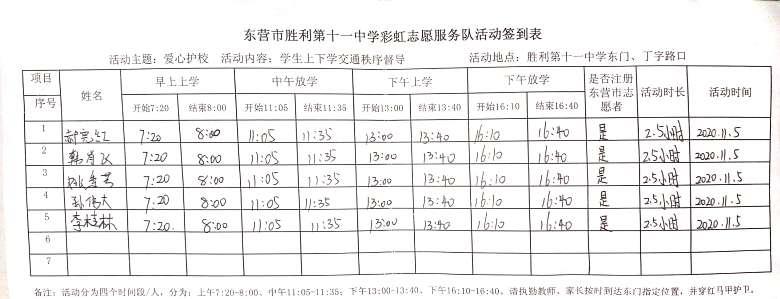 东营市胜利第十一中学彩虹志愿服务队活动签到表
活动主题：爱心护校 活动内容：学生上下学交通秩序督导 活动地点：胜利第十一中学东门、丁字路口
项目 序号 姓名 早上上学 中午放学 下午上学 下午放学 是否注册东营市志愿者 活动时长 活动时间
开始7:20 结束8:00 开始11:05 结束11:35 开始13:00 结束13:40 开始16:10 结束16:40
1 7:20 8:00 11:05 11:35 13:00 13:40 16:10 16:40 是 2.5小时 2020.11.5
2 7:20 8:00 11:05 11:35 13:00 13:40 16:10 16:40 是 2.5小时 2020.11.5
3 7:20 8:00 11:05 11:35 13:00 13:40 16:10 16:40 是 2.5小时 2020.11.5
4 孙伟大 7:20 8:00 11:05 11:35 13:00 13:40 16:10 16:40 是 2.5小时 2020.11.5
5 李桂林 7:20. 8:00 11:05 11:35 13:00 13:40 16:10 16:40 是 2.5小时 2020.11.5
6
7
备注：活动分为四个时间段/人，分为：上午7:20-8:00、中午11:05-11:35；下午13:00-13:40、下午16:10-16:40。请执勤教师、家长按时到达东门指定位置，并穿红马甲护卫。